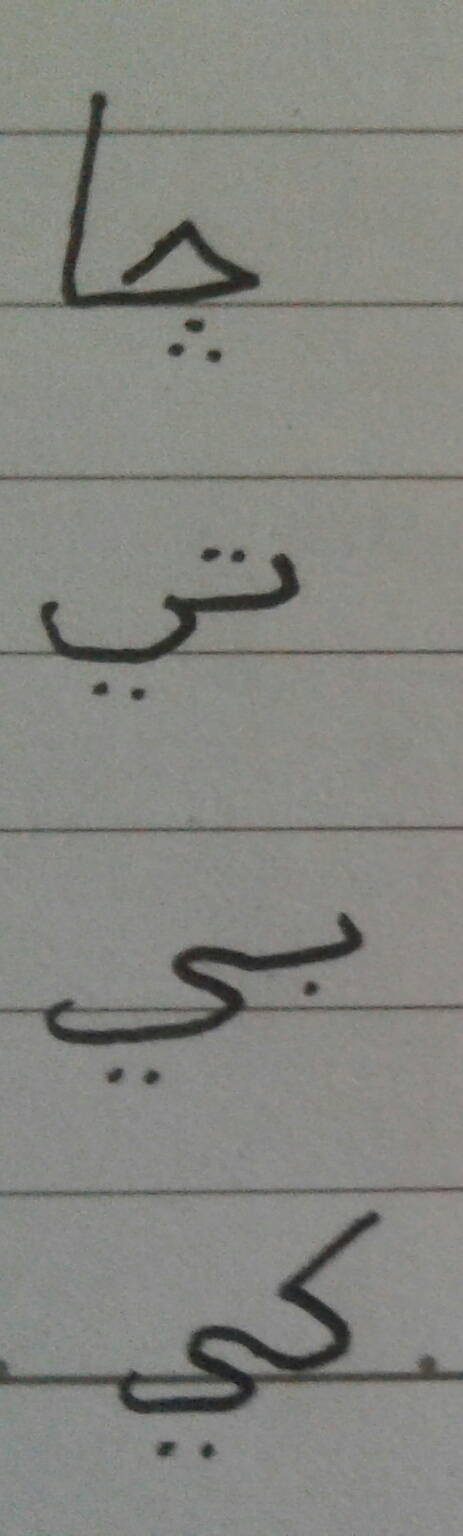 چا
تي
بي
كي